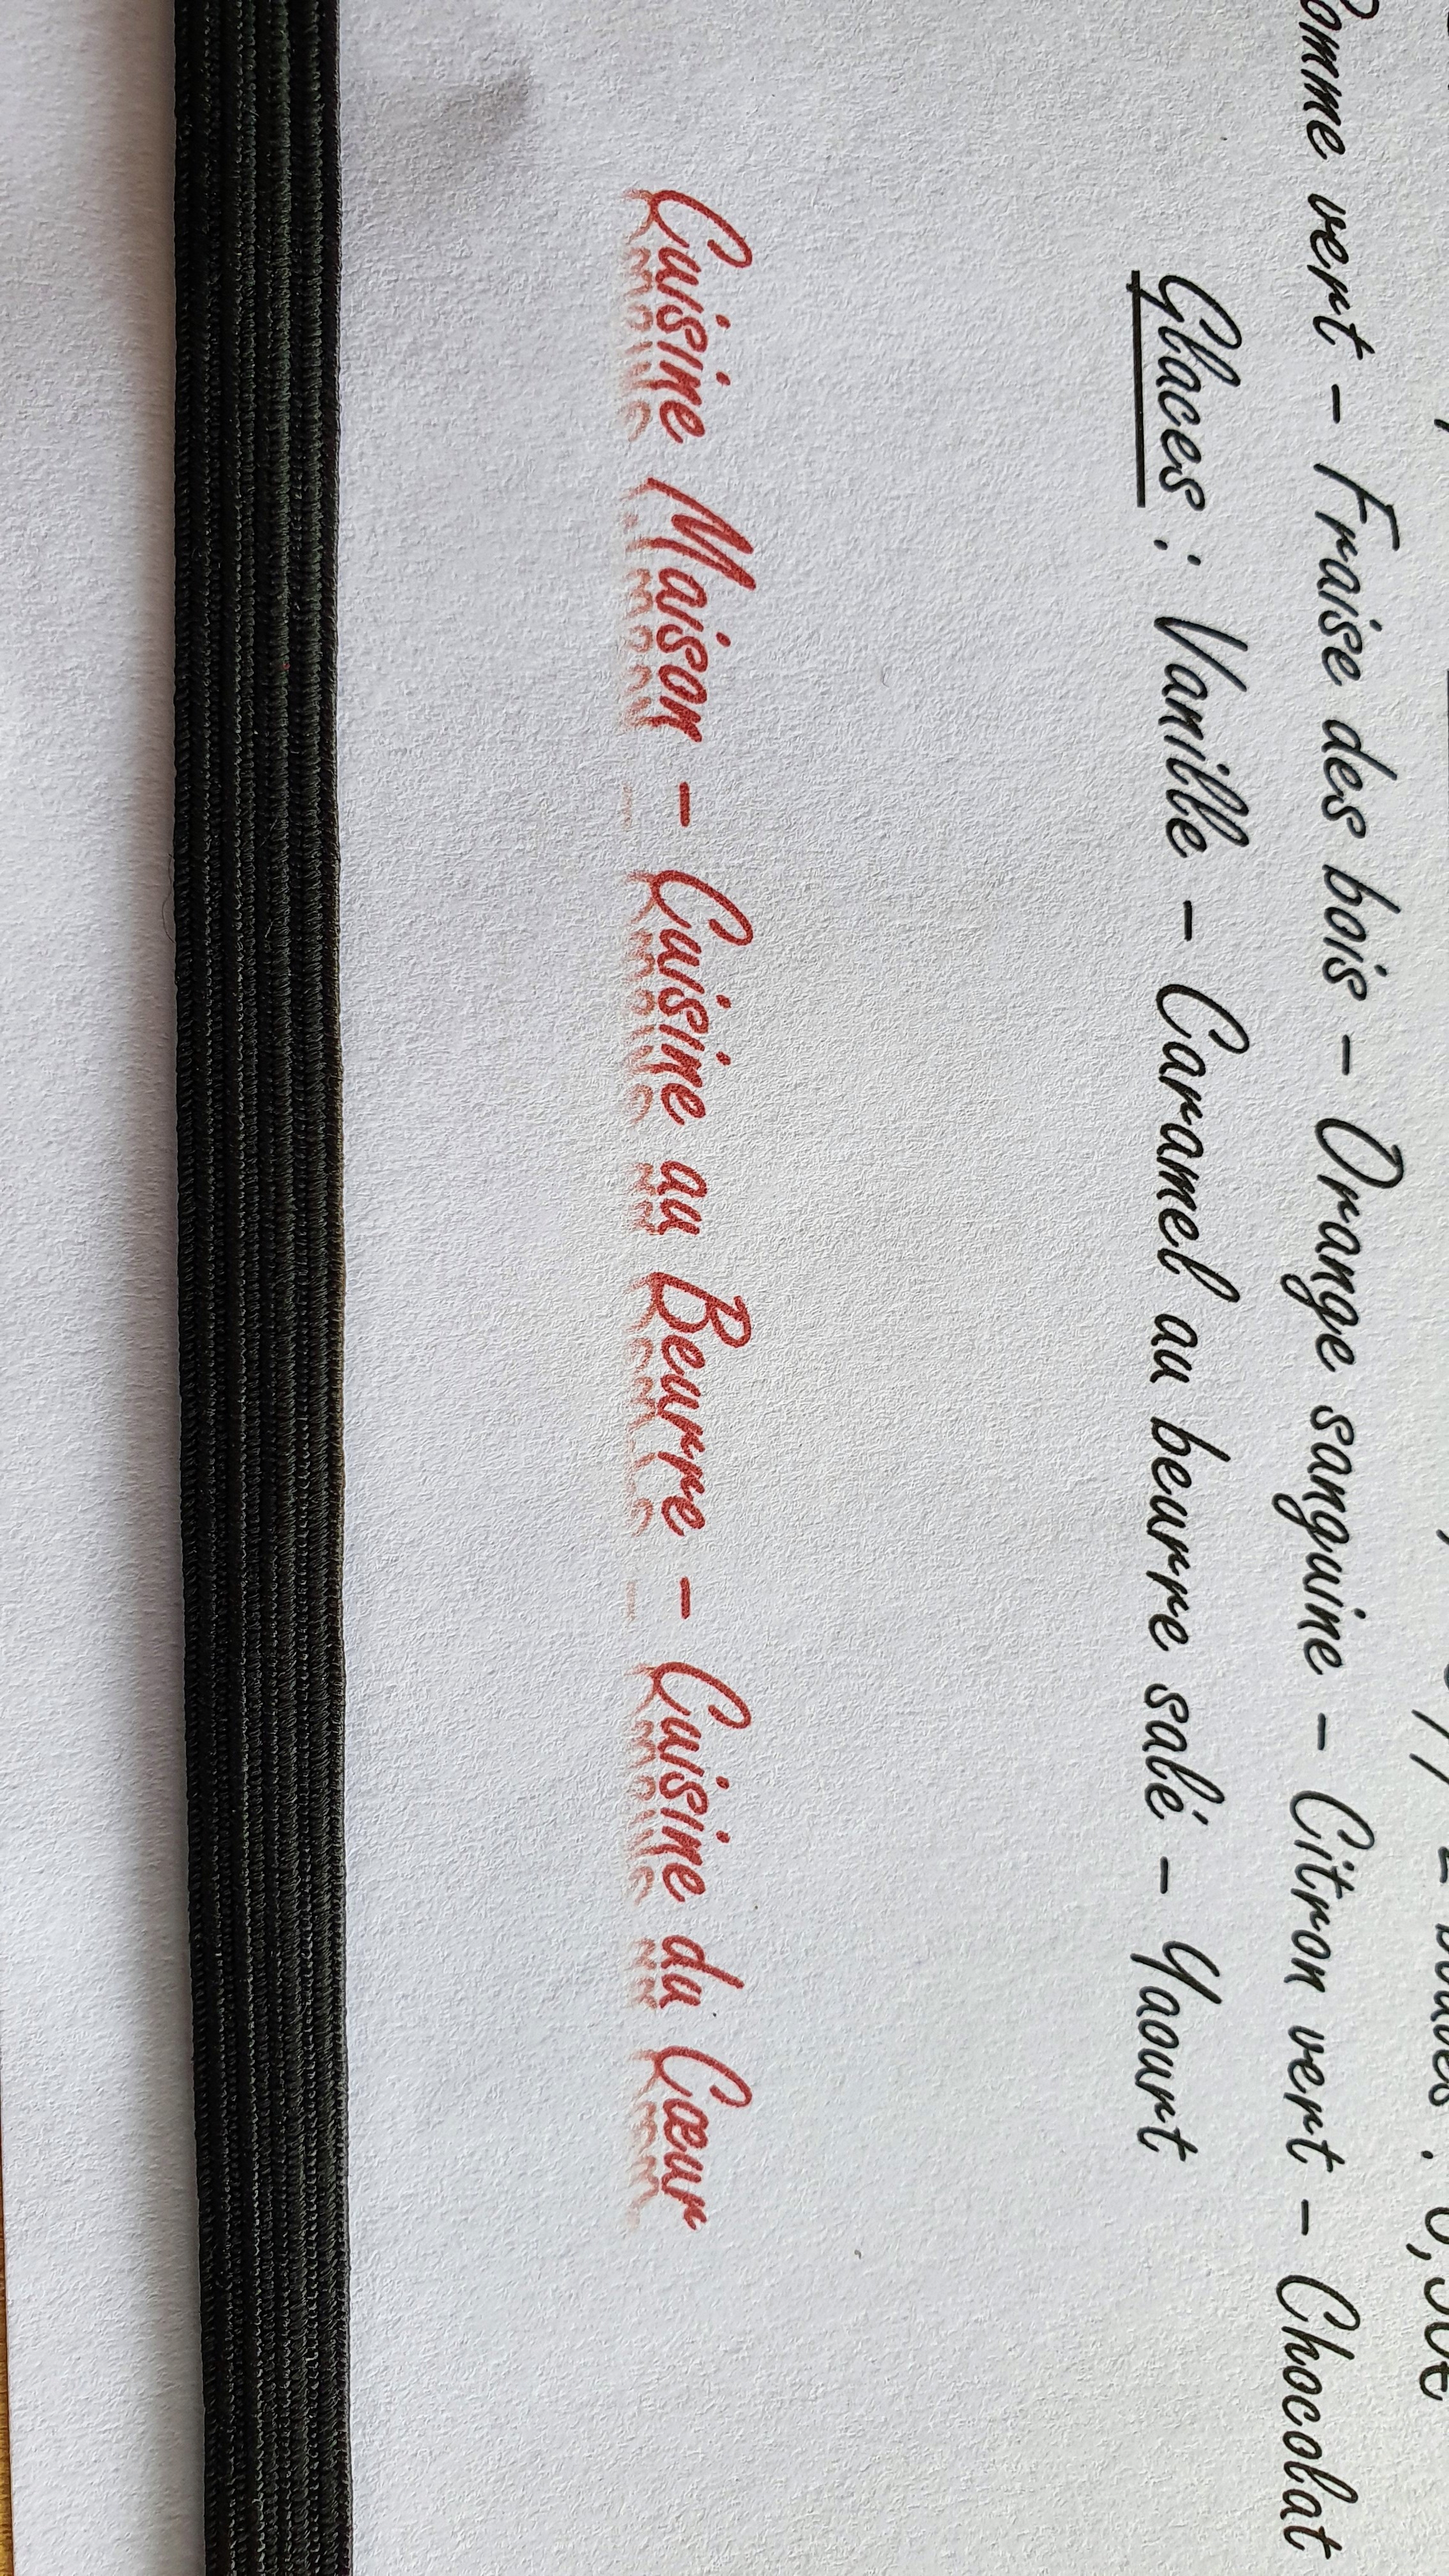 Pomme vert - Fraise des bois - Orange sanguine - Citron vert - Chocolat
Glaces : Vanille - Caramel au beurre salé - Yaourt
Cuisine Maison - Cuisine au Beurre - Cuisine du Cœur